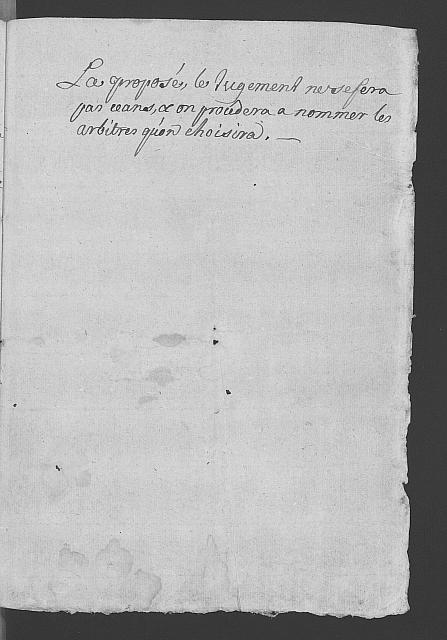 La proposés, le Jugement ne se fera
pas ceans, & on procedera a nommer les
arbitres qu'on choisira. —